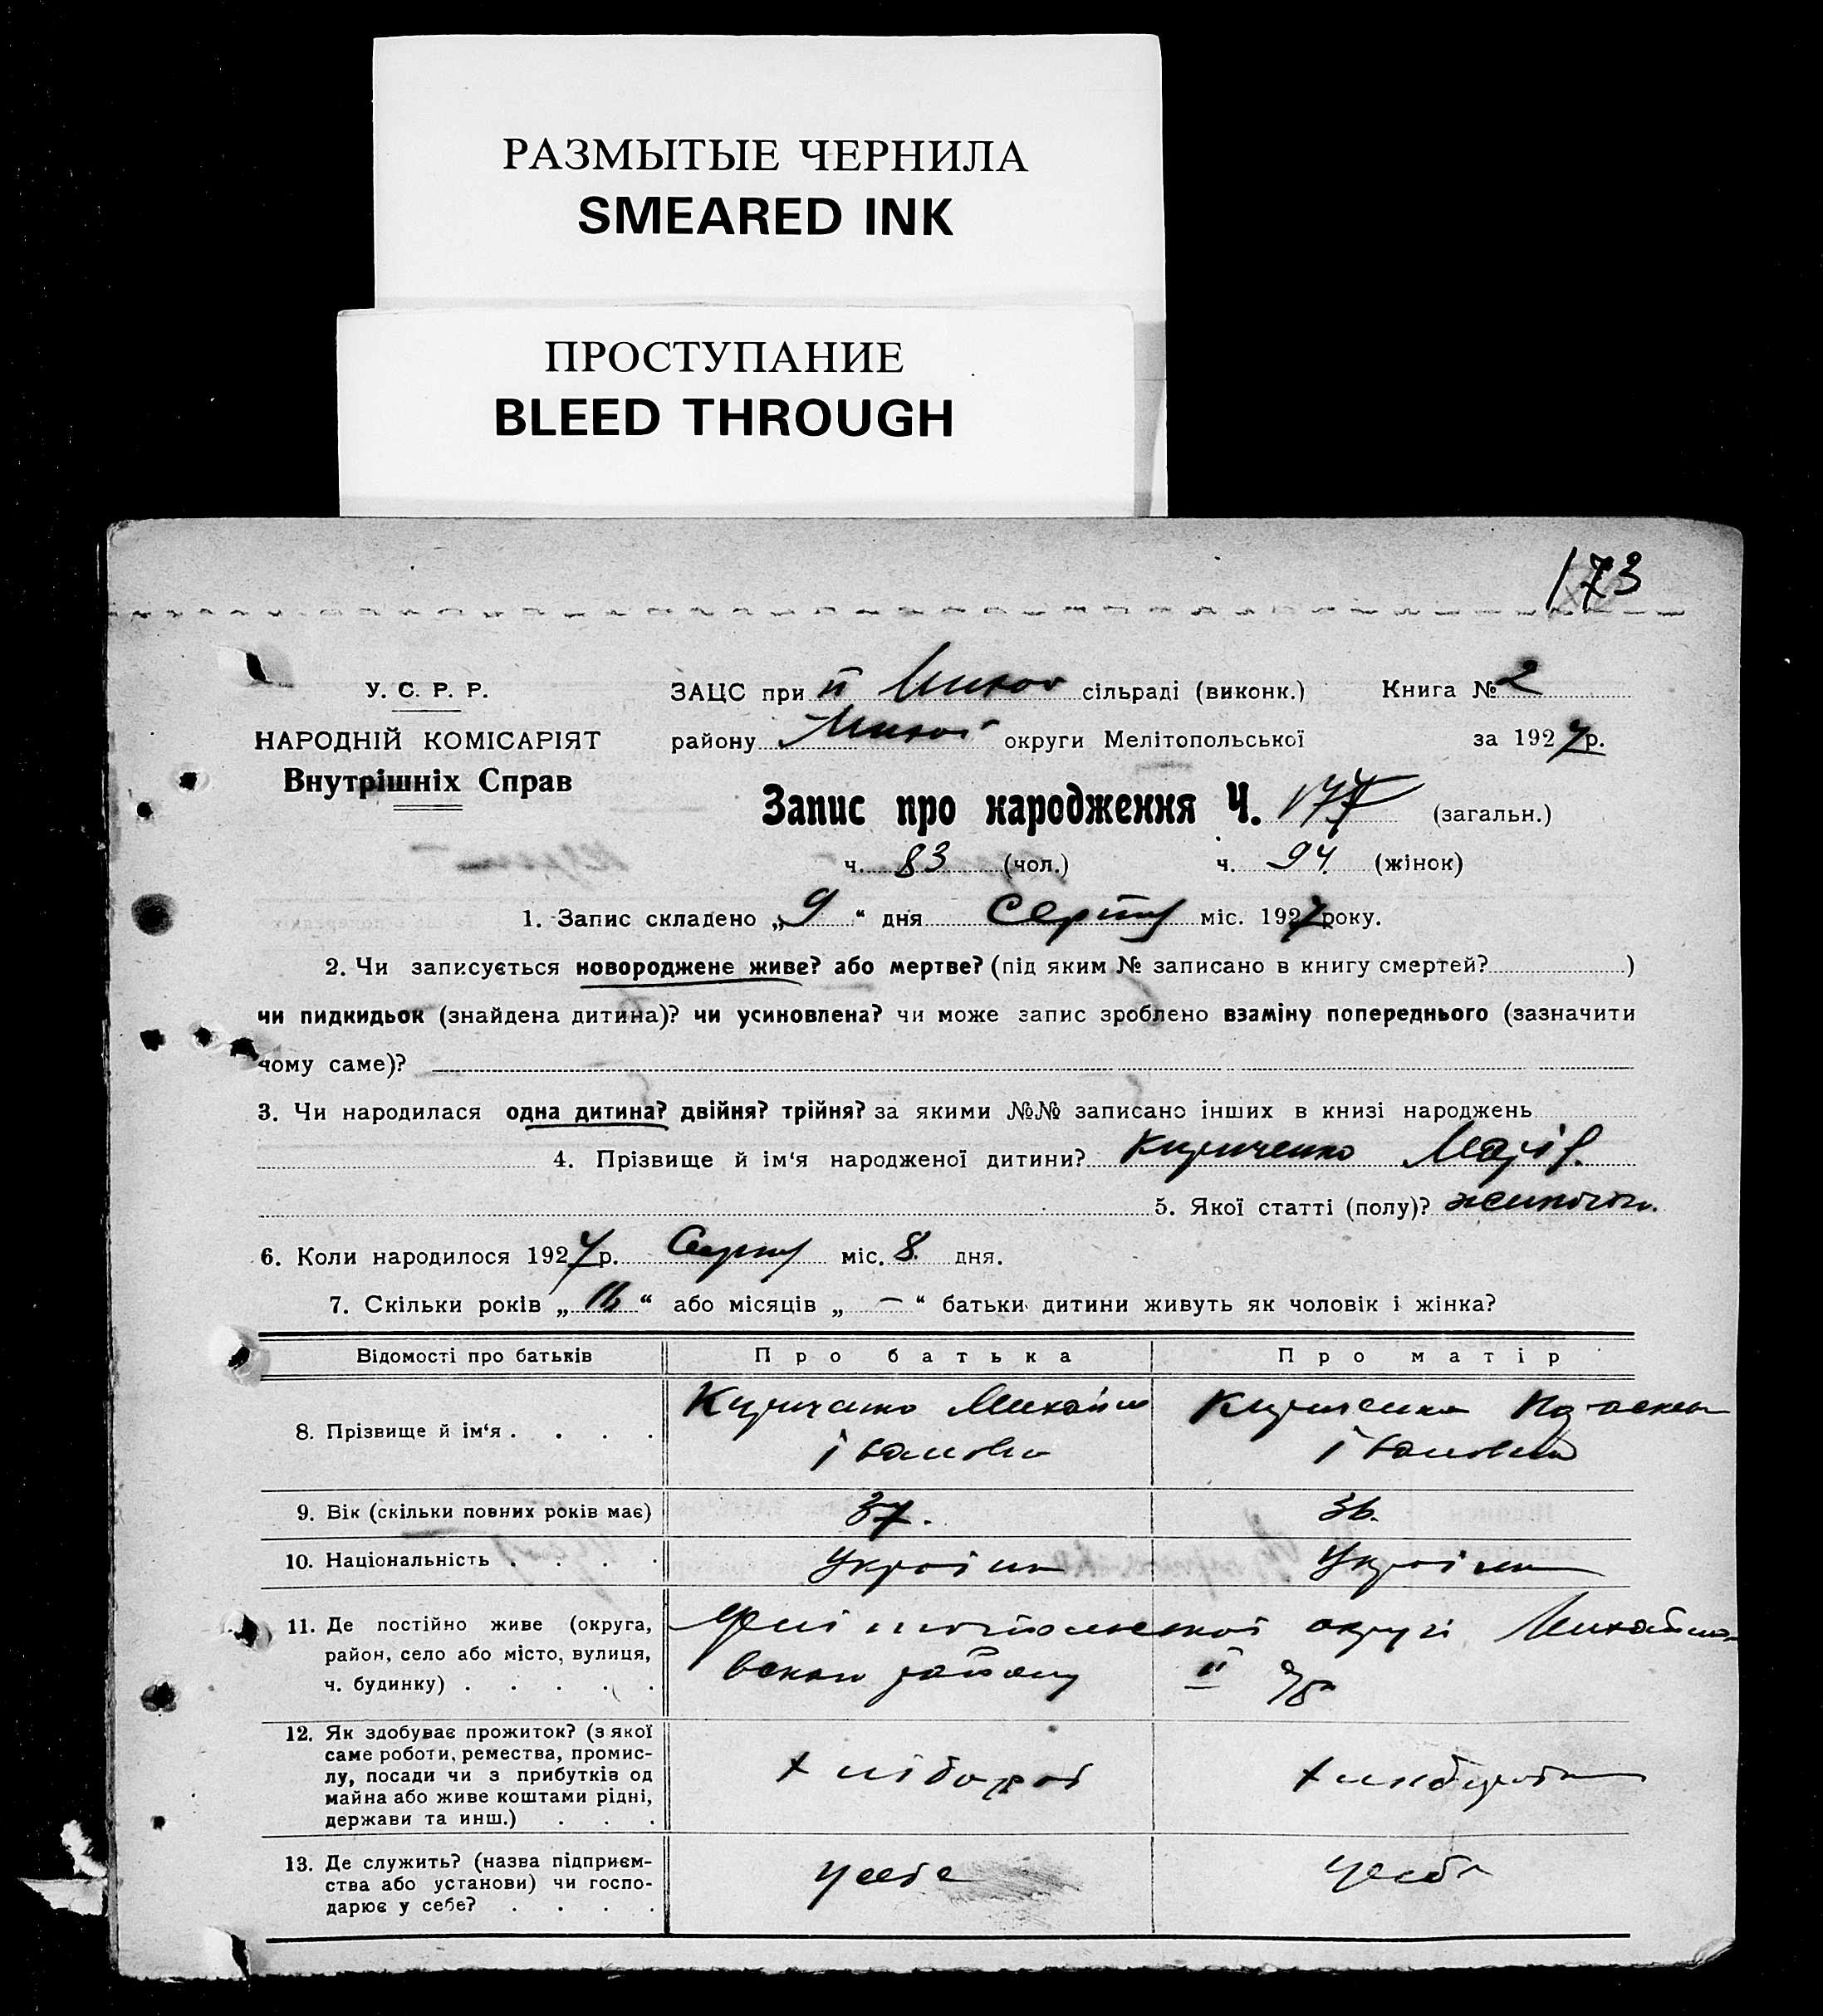 РАЗМЫТЫЕ ЧЕРНИЛА
SMEARED INK
ПРОСТУПАНИЕ
BLEED THROUGH
173
У. С. Р. Р.
НАРОДНІЙ КОМІСАРІЯТ
Внутрішніх Справ
ЗАЦС при II Михов сільраді (виконк.) Книга № 2
району округи Мелітопольської за 1927 р.
Запис про народження Ч. 177 (загальн.)
ч. 83 (чол.) ч. 94 (жінок)
1. Запис складено „9“ дня Серпня міс. 1927 року.
2. Чи записується новороджене живе? або мертве? (під яким № записано в книгу смертей? )
чи пидкидьок (знайдена дитина)? чи усиновлена? чи може запис зроблено взаміну попереднього (зазначити
чому саме)?
3. Чи народилася одна дитина? двійня? трійня? за якими №№ записано інших в книзі народжень
4. Прізвище й ім'я народженої дитини? Кириченко Марія
5. Якої статті (полу)?
6. Коли народилося 1927 р. Серпня міс. 8 дня.
7. Скільки років „ “ або місяців „ — “ батьки дитини живуть як чоловік і жінка?
Відомості про батьків Про батька Про матір
8. Прізвище й ім'я . . . . Кириченко Михайло Кириченко
Іванович Івановна
9. Вік (скільки повних років має) 37. 36.
10. Національність . . . . Україн Україн
11. Де постійно живе (округа,
район, село або місто, вулиця,
ч. будинку) . . . . .
округі Михайлов
вского району II
12. Як здобуває прожиток? (з якої
саме роботи, ремества, промис-
лу, посади чи з прибутків од
майна або живе коштами рідні,
держави та инш.) . . .
хлібороб
13. Де служить? (назва підприєм-
ства або установи) чи госпо-
дарює у себе? . . . .
у себе у себе